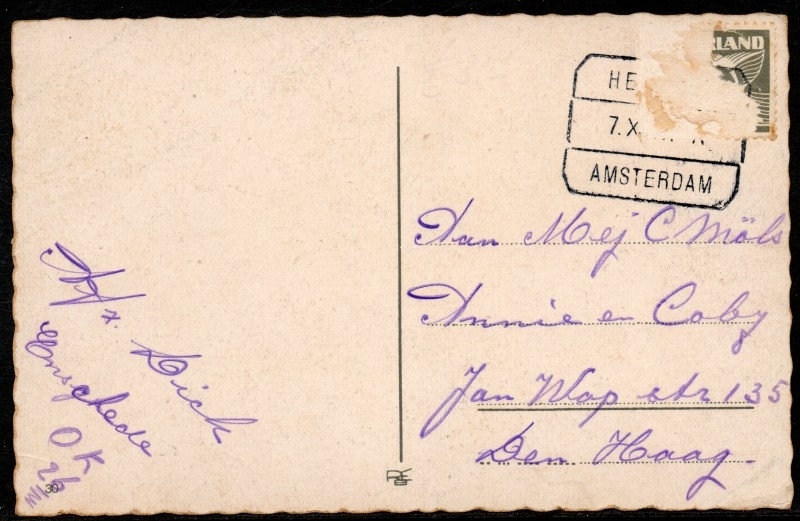 RLAND
HE
7.X
AMSTERDAM
Aan Mej C Möls
Annie en Coby
Jan Wap str 135
Den Haag.
Dick
Enschede
OK
26
30